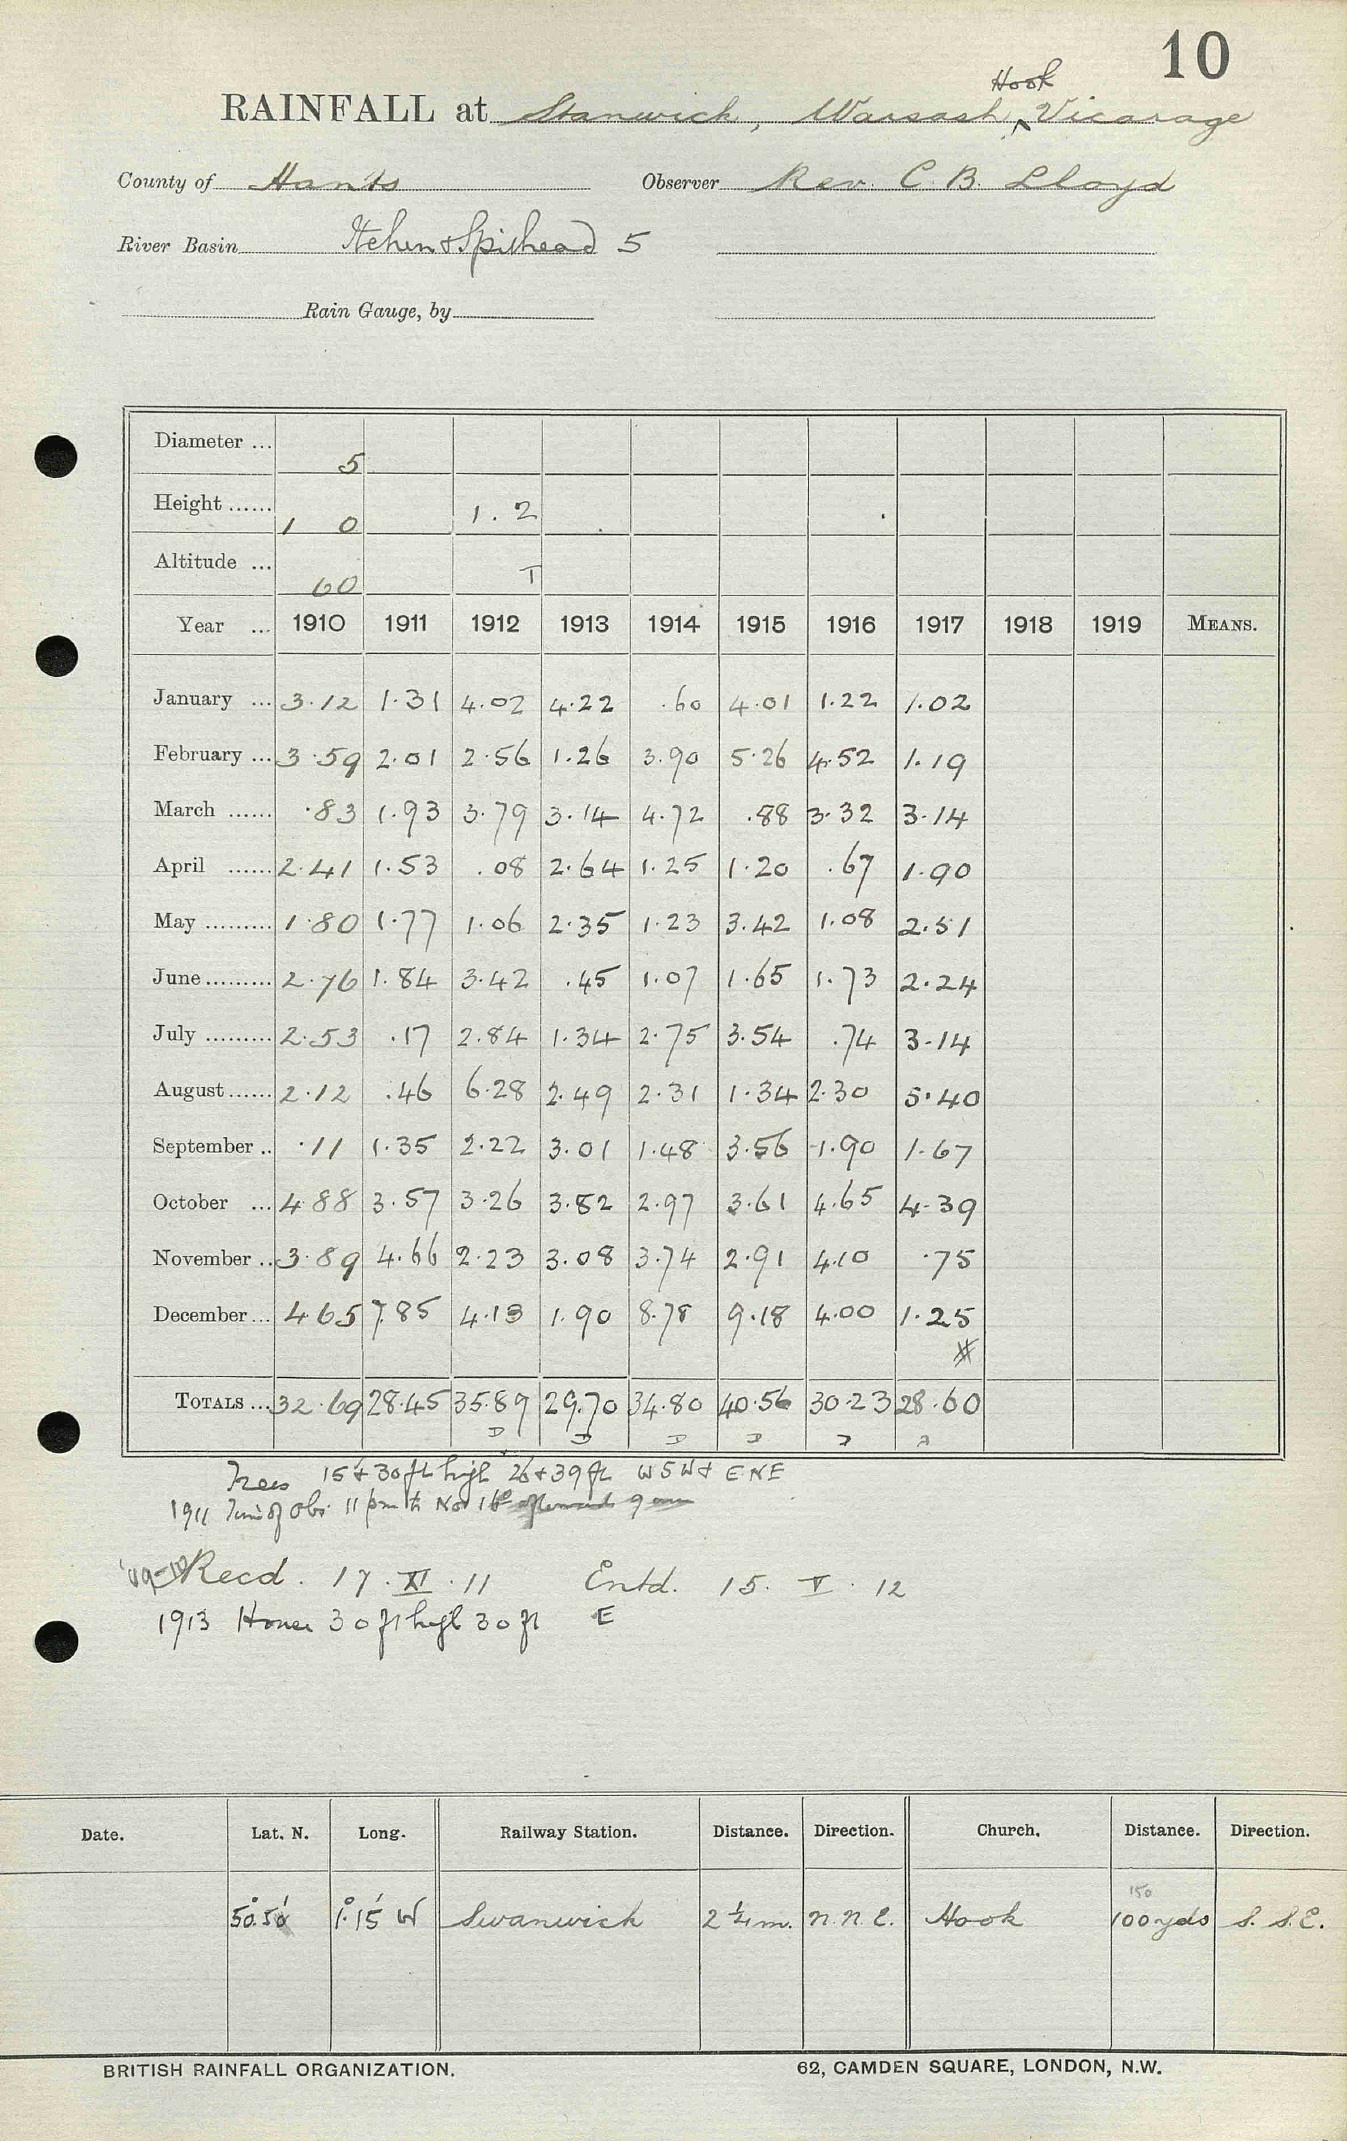 10
Hook
RAINFALL at Stanwick, Warsash, ^ Vicarage
County of Hants Observer Rev. C. B. Lloyd
River Basin Itchen & Spithead 5
Rain Gauge, by
Diameter ... 5
Height ...... 1 0 1.2
Altitude ... 60 T
Year ... 1910 1911 1912 1913 1914 1915 1916 1917 1918 1919 MEANS.
January ... 3.12 1.31 4.02 4.22 .60 4.01 1.22 1.02
February ... 3.59 2.01 2.56 1.26 3.90 5.26 4.52 1.19
March ...... .83 1.93 3.79 3.14 4.72 .88 3.32 3.14
April ...... 2.41 1.53 .08 2.64 1.25 1.20 .67 1.90
May ......... 1.80 1.77 1.06 2.35 1.23 3.42 1.08 2.51
June ......... 2.76 1.84 3.42 .45 1.07 1.65 1.73 2.24
July ......... 2.53 .17 2.84 1.34 2.75 3.54 .74 3.14
August ...... 2.12 .46 6.28 2.49 2.31 1.34 2.30 5.40
September .. .11 1.35 2.22 3.01 1.48 3.56 1.90 1.67
October ... 4.88 3.57 3.26 3.82 2.97 3.61 4.65 4.39
November .. 3.89 4.66 2.23 3.08 3.74 2.91 4.10 .75
December ... 4.65 7.85 4.13 1.90 8.78 9.18 4.00 1.25
TOTALS ... 32.69 28.45 35.89 29.70 34.80 40.56 30.23 28.60
D D D D
Trees 15 & 30 ft high 26 & 39 ft WSW & ENE
1911 Time of Obs. 11 pm to Nov 16 afterwards 9 am
'09-10 Recd. 17. XI. 11 Entd. 15. V. 12
1913 House 30 ft high 30 ft E
Date. Lat. N. Long. Railway Station. Distance. Direction. Church. Distance. Direction.
150
50° 50' 1° 15' W Swanwick 2 1/4 m. N. N. E. Hook 100 yds S. S. E.
BRITISH RAINFALL ORGANIZATION. 62, CAMDEN SQUARE, LONDON, N.W.